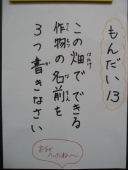 もんだい13
この畑でできる
はたけ
作物の名前を
3つ書きなさい